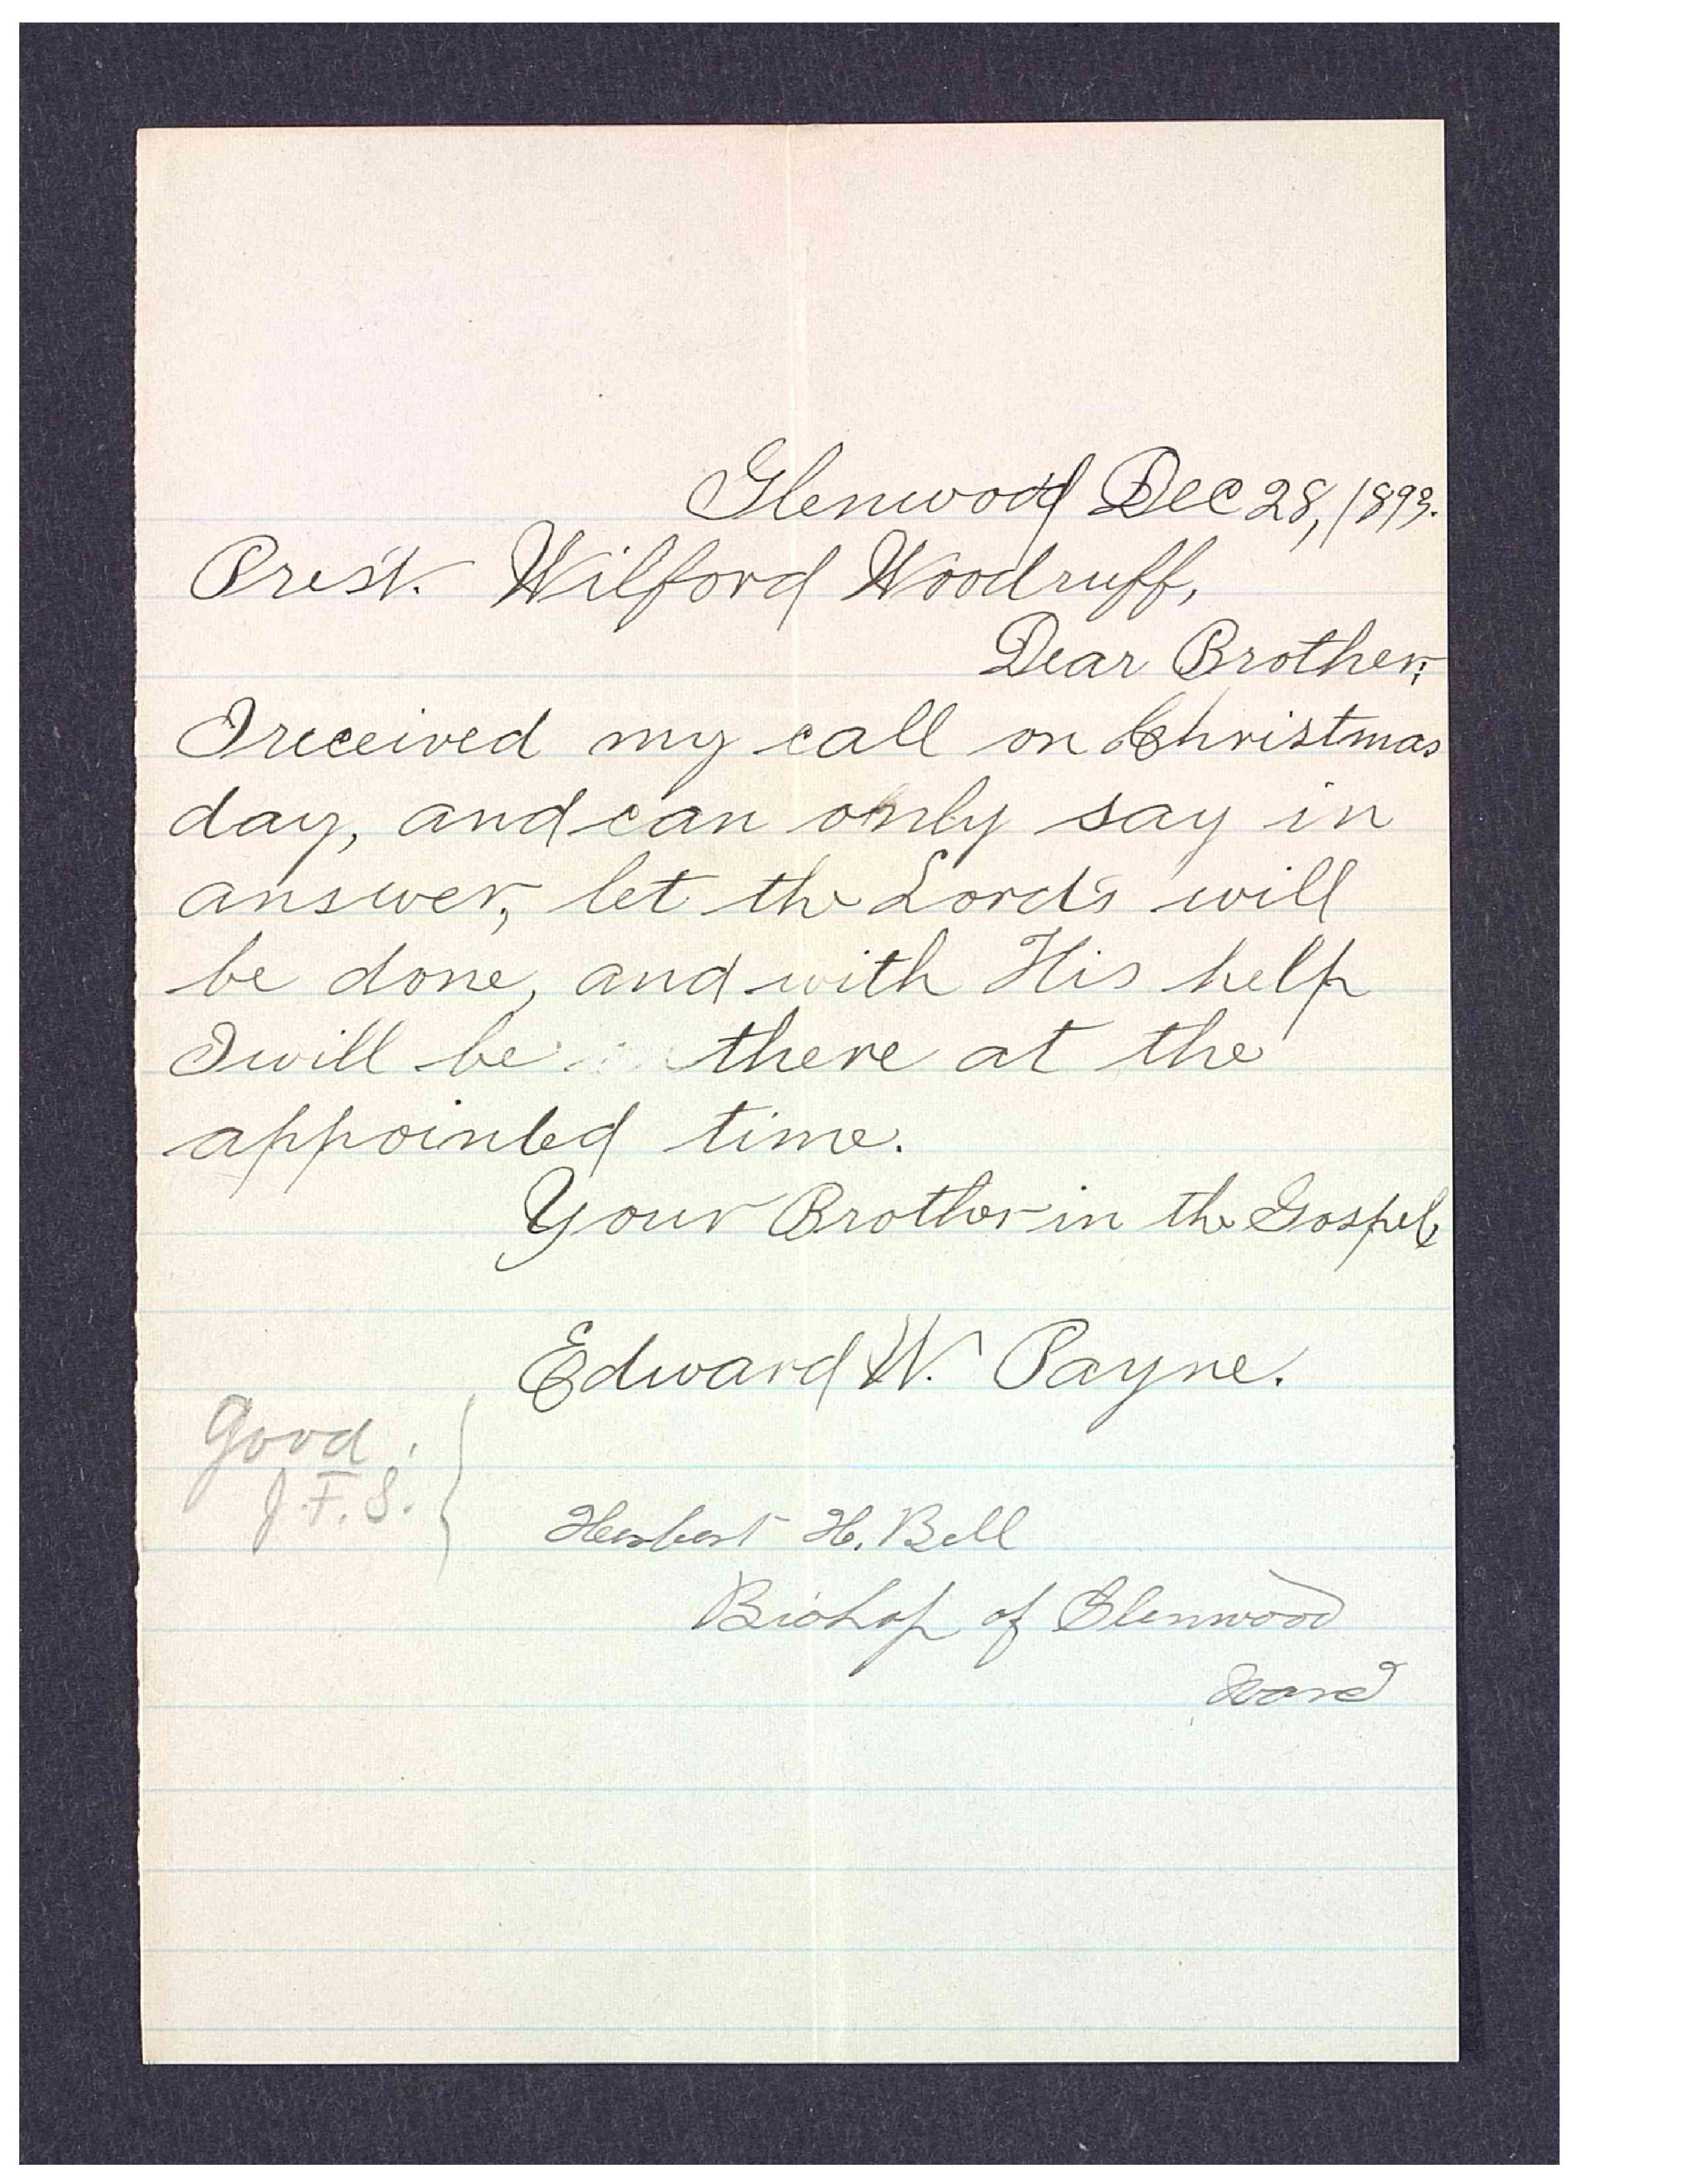 Glenwood Dec 28, 1893.
Prest. Wilford Woodruff,
Dear Brother;
I received my call on Christmas
day, and can only say in
answer, let the Lord's will
be done, and with His help
I will be there at the
appointed time.
Your Brother in the Gospel,
Edward W. Payne.
Good.
J. F. S.
Herbert H. Bell
Bishop of Glenwood
Ward